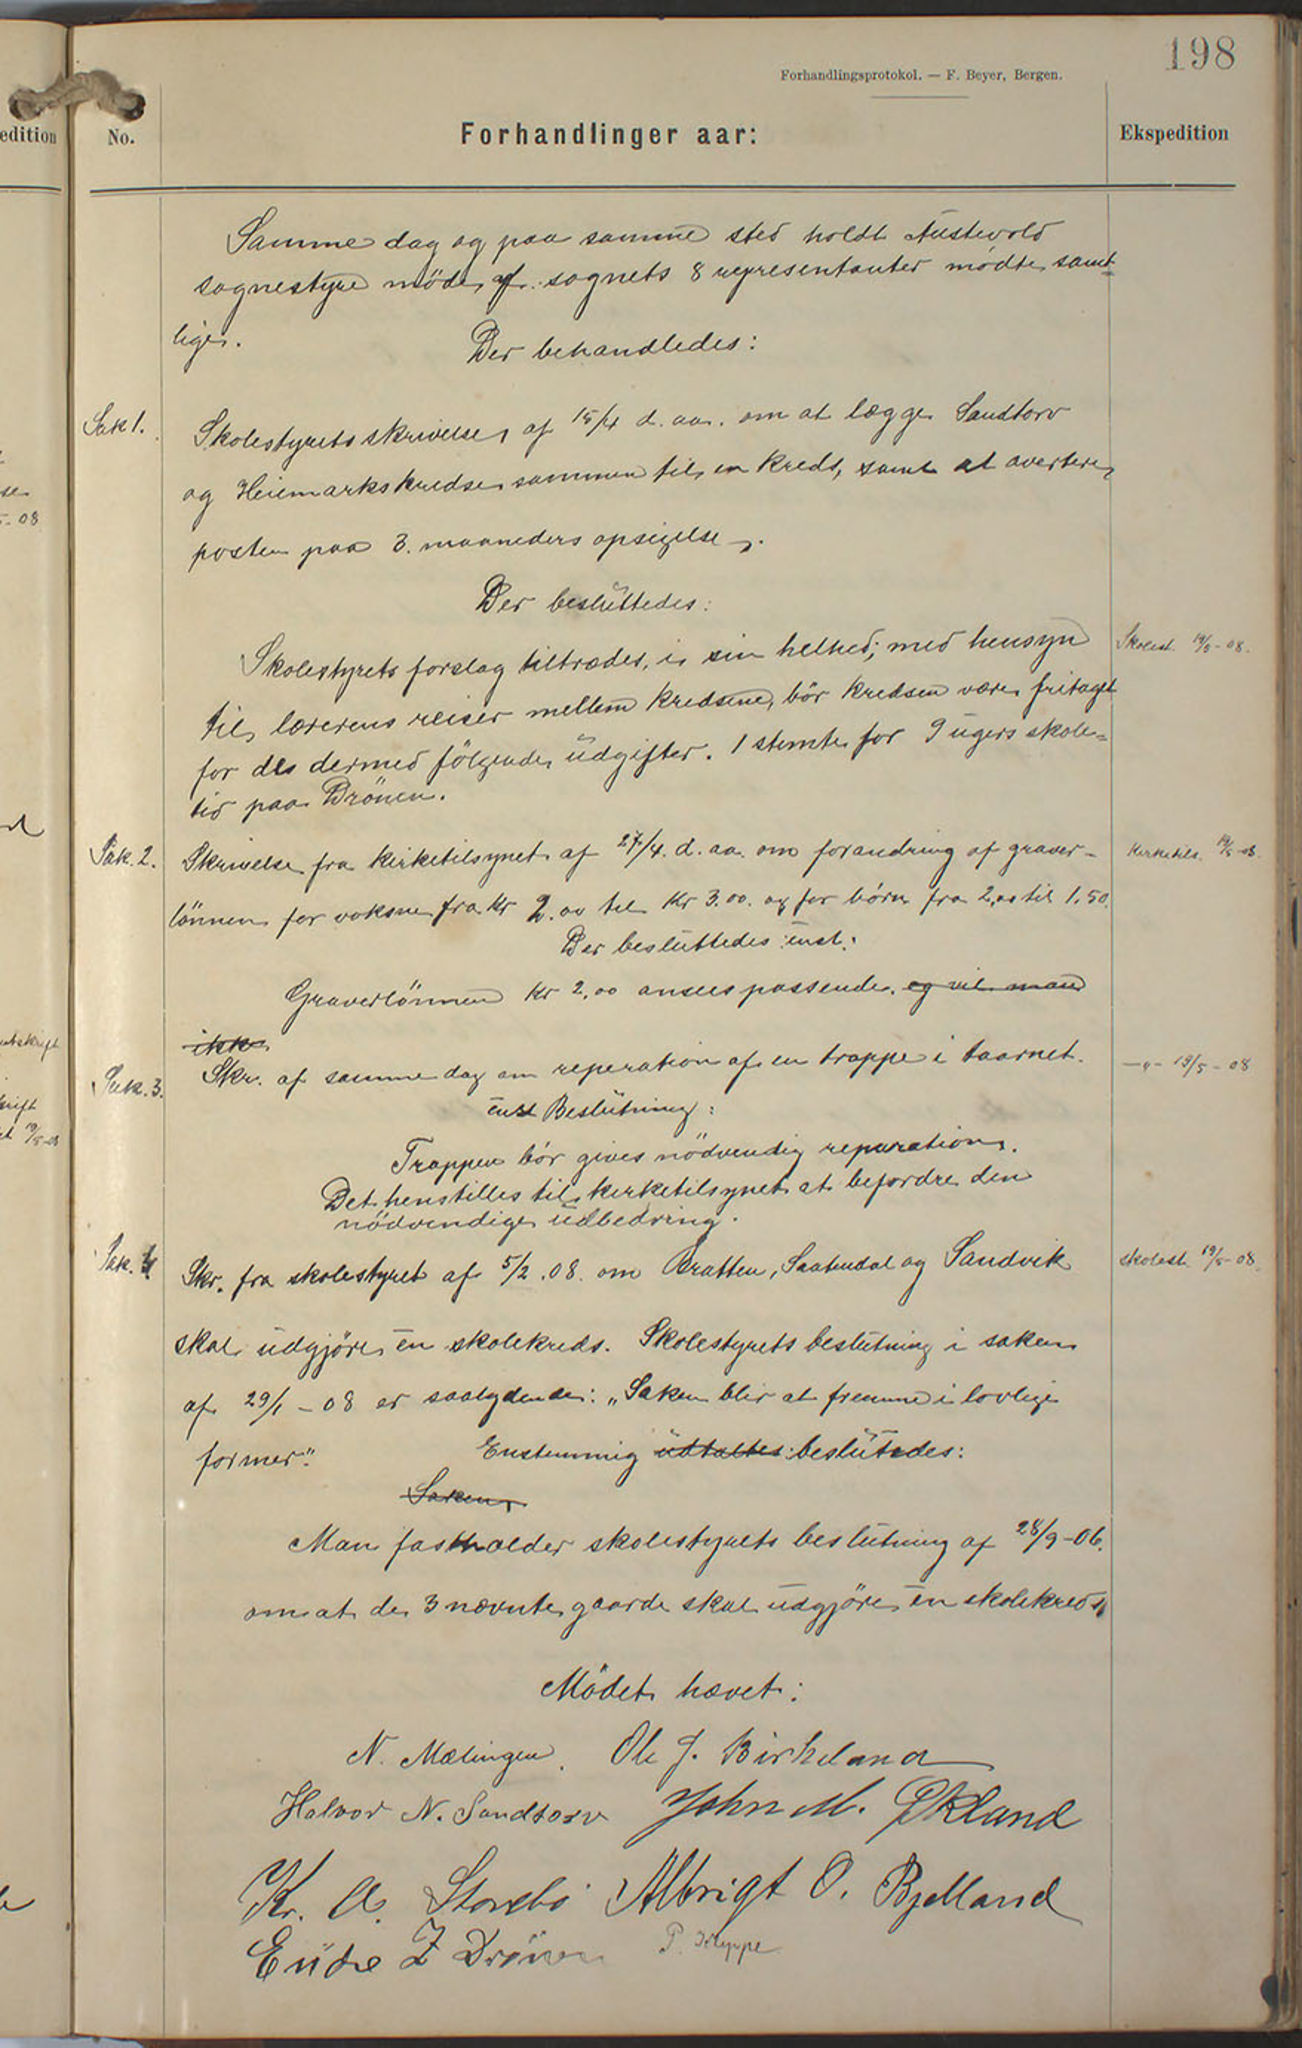 198
Forhandlingsprotokol. — F. Beyer, Bergen.
edition
No.
Forhandlinger aar:
Ekspedition
Samme dag og paa samme sted holdt Austevold
sognestyre møde, af sognets 8 representanter mødte samt-
lige.
Der behandledes:
Sak 1.
Skolestyrets skrivelse af 15/4 d. aa. om at lægge Sandtorv
og Heiemarkskredse sammen til en kreds, samt at avertere
posten paa 3. maaneders opsigelse.
Der besluttedes:
Skolestyrets forslag tiltrædes i sin helhed; med hensyn
Skolest. 19/5-08.
til lærerens reiser mellem kredsene, bör kredsen være fritaget
for des dermed fölgende udgifter. 1 stemte for 9 ugers skole-
tid paa Drönen.
Sak. 2.
Skrivelse fra kirketilsynet af 27/4. d. aa. om forandring af graver-
Kirketils. 19/5-08.
lönnen for voksne fra Kr 2.00 til Kr 3.00. og for börn fra 2,00 til 1,50.
Der besluttedes enst:
Graverlönnen Kr 2,00 ansees passende. og vil man
ikke
Sak. 3.
Skr. af samme dag om reperation af en trappe i taarnet.
—„— 19/5-08
enst Beslutning:
Trappen bör gives nödvendig reparation.
Det henstilles til kirketilsynet at befordre den
nödvendige udbedring.
Sak. 4
Skr. fra skolestyret af 5/2.08. om Bratten, Saatendal og Sandvik
skolest. 19/5-08.
skal udgjöre en skolekreds. Skolestyrets beslutning i saken
af 29/1-08 er saalydende: „Saken blir at fremme i lovlige
former".
Enstemmig udtaltes: beslutedes:
Saken
Man fastholder skolestyrets beslutning af 28/9-06.
om at de 3 nævnte gaarde skal udgjöre en skolekreds
Mödet hævet:
N. Mælingen. Ole J. Birkeland
Halvor N. Sandtorv John M. Økland
Kr. A. Storebö Albrigt O. Bjelland
Endre Z Drönen P. Kleppe